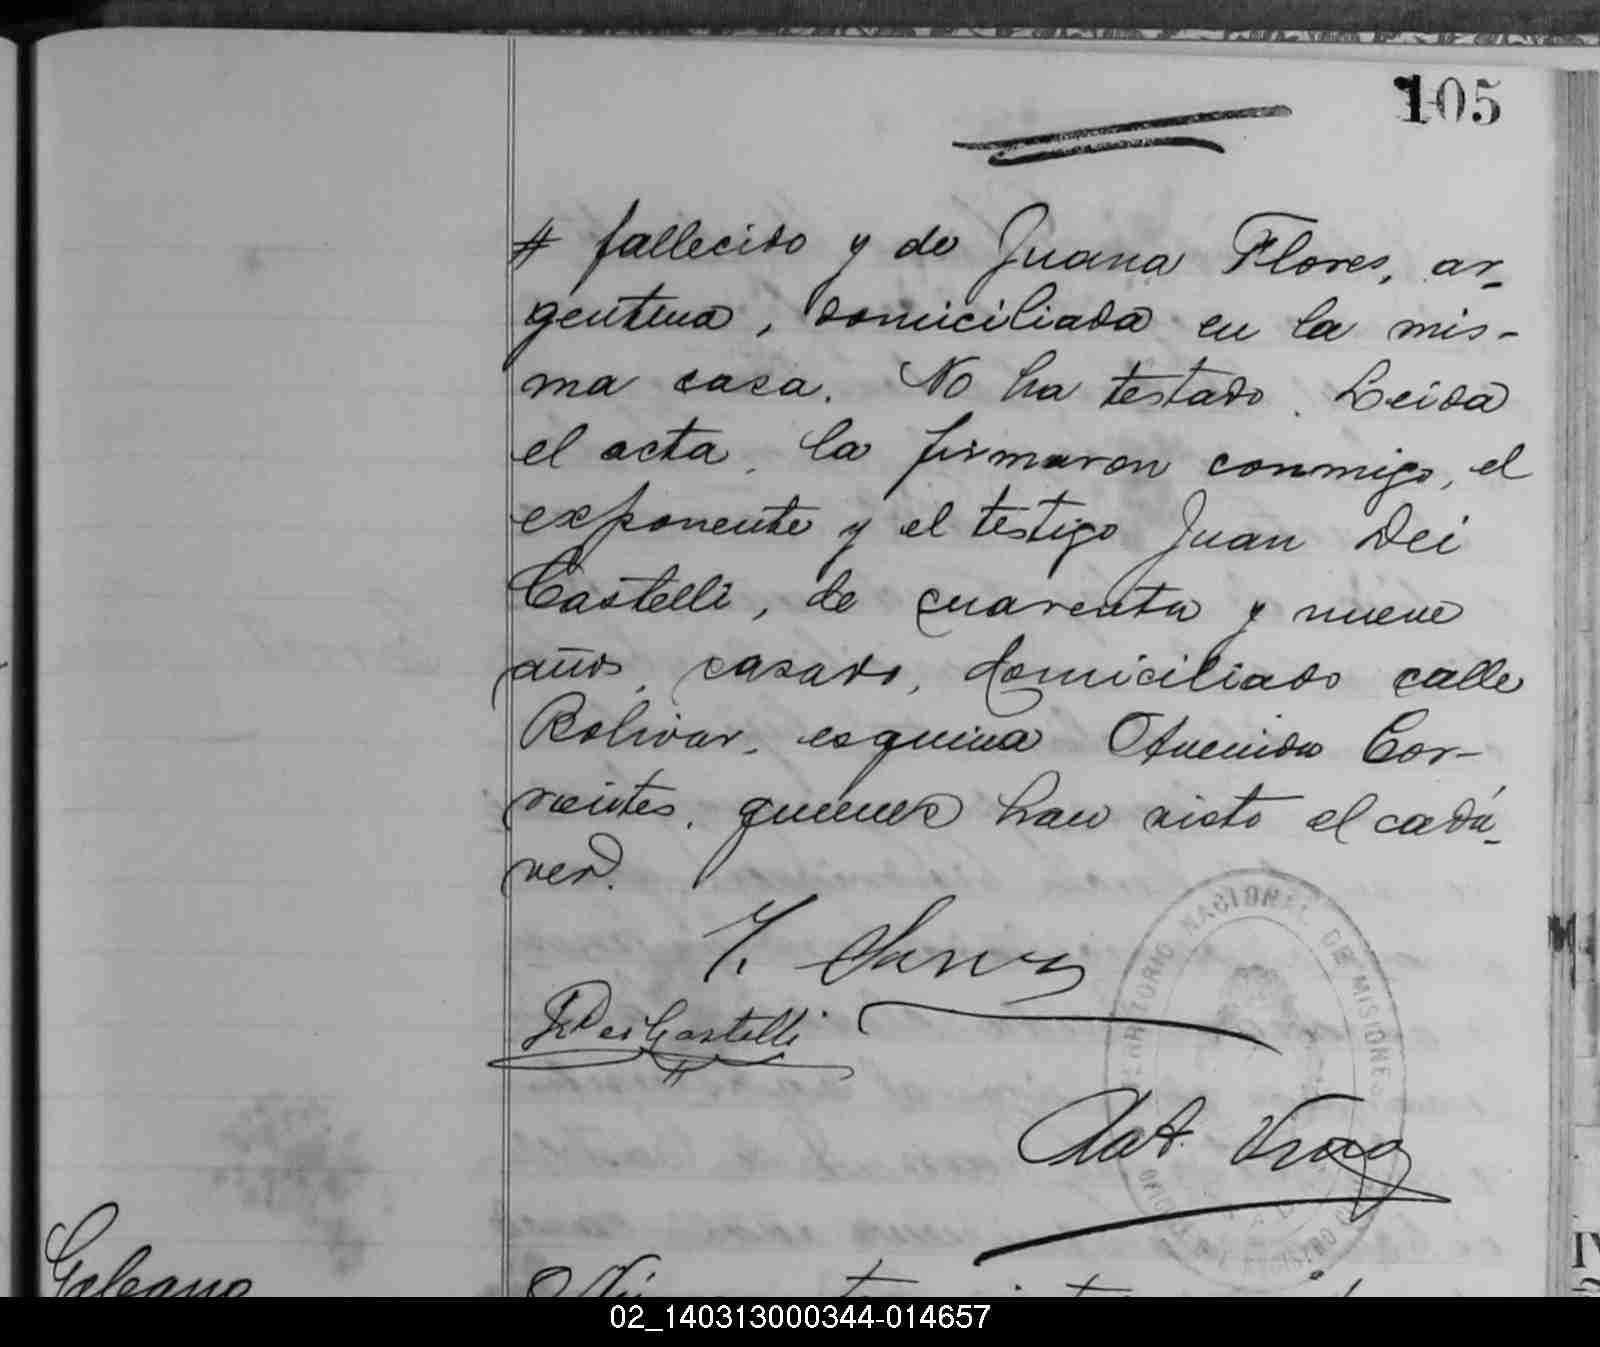 105
# fallecido y de Juana Flores, ar-
gentina, domiciliada en la mis-
ma casa. No ha testado. Leida
el acta, la firmaron conmigo, el
exponente y el testigo Juan Dei
Castelli, de cuarenta y nueve
años, casado, domiciliado calle
Bolivar, esquina Avenida Cor-
rientes, quienes han visto el cadá-
ver.
J Dei Castelli
TERRITORIO NACIONAL DE MISIONES
Galeano
02_140313000344-014657